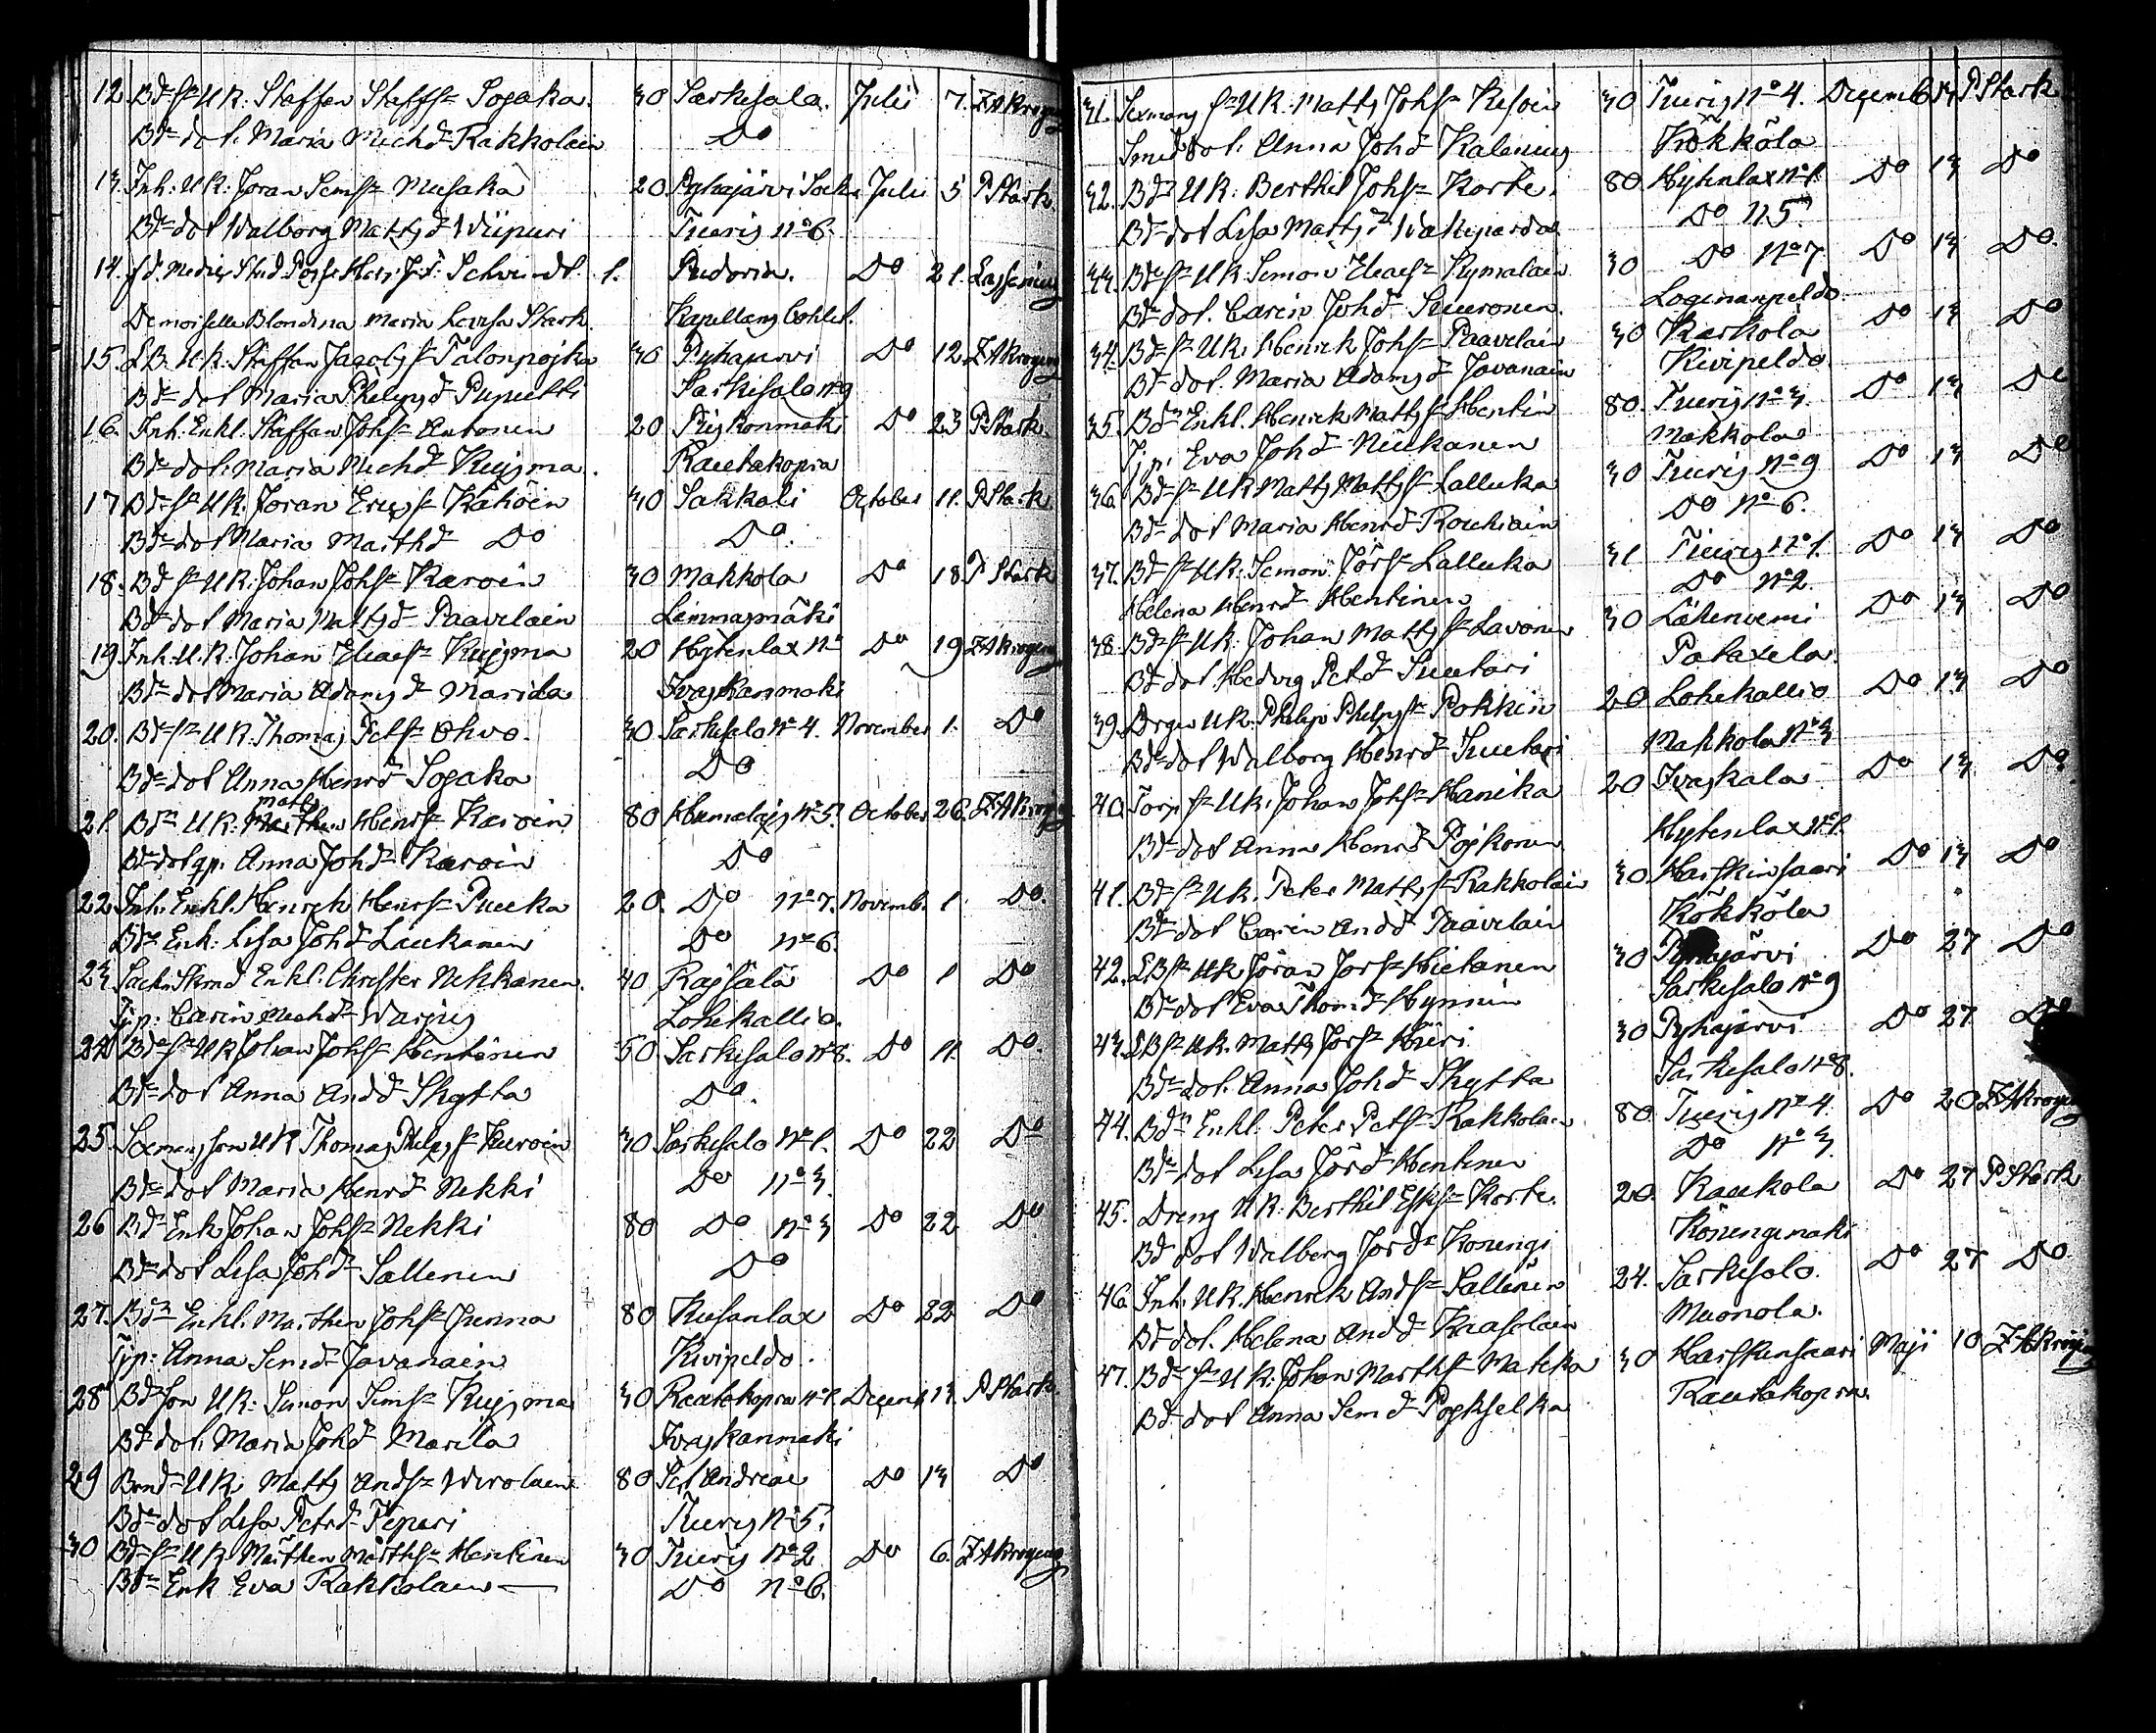 12. Bde sn UR: Staffan Staffsn Sojaka. 30 Sarkisala. Julii 7. Z A Krogerus
Bde dot. Maria Michd. Rakkolain Do
13. Inh: UR: Joran Simsn Musaka 20. Pyhajärvi Sock. Julii 5 P Stark.
Bde dot Walborg Mattsd. Wiipuri Tiuris No 6.
14. Schvindt. 1. Do 21.
Demoiselle Blondina Maria Lovisa Stark. Kapellans
15. L B. UR. Staffan Jacobs sn Talonpojka 30 Pyhajarvi Do 12. Z A Krogerus
Bde dot Maria Philipsd. Puputti Sarkisalo No 9
16. Inh. Enkl. Staffan Johsn Antonen 20 Do 23 P Stark.
Bde dot. Maria Michd. Kuisma. Rautakopra
17 Bde sn UR. Joran Ericssn Kaköin 30 Sakkali October 11. P Stark.
Bde dot Maria Marthd. Do Do.
18. Bde sn UR: Johan Johsn Karoin 30 Makkola Do 18 P Stark
Bde dot Maria Mattsd. Paavelain Linnasmäki
19 Inh. UR. Johan Eliaesn Kuisma 20 Hytinlax No Do 19 Z A Krogerus
Bde dot Maria Adamsd. Marida Ivaskanmaki
20. Bde sn UR. Thomas Petsn Ohvo. 30 Sarkisalo No 4. November 1. Do
Bde dot Anna Henrd. Sojaka Do
21. Bdn UR. Matts Henrsn Karoin 80 Humalajs No 5. October 26. Z A Krogerus
Bde dot qp. Anna Johd. Karoin Do
22. Inh. Enkl. Henrich Henrsn Puuka 20. Do No 7. Novemb. 1 Do.
Bde Enk: Lisa Johd. Liukanen Do No 6.
23. Enkl: Christer Nekkanen. 40 Rajsälä Do 1 Do
Tjp: Carin Michd. Warjus Lohikallio.
24 Bde sn UR Johan Johsn Hentinen 50. Sarkisalo No 8. Do 11. Do.
Bde dot Anna Andd. Skytta Do.
25. Sexmans son UR Thomas Philips sn Kuroin 30 Sarkisalo No 1. Do 22 Do
Bde dot Maria Henrd. Nekki Do No 3.
26 Bdn Enk Johan Johsn Nekki 80 Do No 3 Do 22 Do
Bde dot Lisa Johd. Sallinen Do
27. Bdn Enkl. Marthen Johsn Junna 80 Kusanlax Do 22 Do
Tjp: Anna Simd. Javanain Kivipeldo.
28 Bde Son UR: Simon Simsn Kuisma 30 Rautakopra No 1. Decemb 13. P Stark.
Bde dot. Maria Johd. Marila Ivaskanmaki
29 UR. Matts Andsn Wirolain 80 Sct Andreae Do 13 Do
Bde dot Lisa Petrd. Pipari Tiuris No 5.
30 Bde sn UR. Marthen Marthsn Hentinen 30 Tiuris No 2 Do 6. Z A Krogerus
Bde Enk Eva Rakkolain — Do No 6.
31. Sexmans sn UR. Matts Johsn Kesoin 30 Tiuris No 4. Decemb 13 P Stark
Smed dot. Anna Johd. Kalenius Kökköla
32. Bdn UR: Berthil Johsn Korke. 80 Hytinlax No 1. Do 13 Do
Bde dot Lisa Mattsd. Wakiparda Do N 5.
33. Bde sn UR: Simon Eliaesn Kymalain 30 Do No 7 Do 13 Do.
Bde dot. Carin Johd. Suuronen. Loginanpeldo
34. Bde sn UR. Henrich Johsn Paavelain 30 Karkola Do 13 Do
Bde dot. Maria Adamsd. Javanain Kivipeldo.
35. Bdn Enkl. Henrich Mattssn Hentin 80. Tiuris No 3. Do 13 Do
Tjp. Eva Johd. Niukanen Makkola
36. Bde sn UR Matts Matts sn Lalluka 30 Tiuris No 9 Do 13 Do
Bde dot Maria Henrd. Rouhiain Do No 6.
37. Bde sn UR: Simon Jörsn Lalluka 31 Tiuris No 1. Do 13 Do
Helena Henrd. Hentinen Do No 2
38. Bde sn UR. Johan Matts sn Lavonen 30 Lätenvemi Do 13 Do
Bde dot Hedvig Petd. Suutari Pataxela.
39. Dreg. UR. Philip Philips sn Pokkin 20 Lohikallio Do 13 Do
Bde dot Walborg Henrd. Suutari Makkola No 3
40. Torp. sn UR. Johan Johsn Hanika 20 Ivaskala Do 13 Do.
Bde dot Anna Henrd. Pojkonen Hytinlax No 1.
41. Bde sn UR. Peter Matts sn Rakkolain 30. Harskinsaari Do 13 Do
Bde dot Carin Andd. Paavelain Kökköla
42. L B sn UR Jöran Jorsn Hietanen 30 Pyhajärvi Do 27 Do
Bde dot Eva Thomd. Hynnin Sarkisalo No 9
43. L B sn UR. Matts Jorsn Hiiri. 30 Pyhajärvi Do 27 Do
Bde dot. Anna Johd. Skytta Sarkisalo No 8.
44. Bdn Enkl. Peter Petsn Rakkolain 80. Tiuris No 4. Do 20 Z A Krogerus
Bde dot Lisa Jörd. Hentinen Do No 3.
45. Dreng UR. Berthil Eskssn Korke. 20. Kaukola Do 27 P Stark
Bde dot Walborg Jord. Konengi Könengimaki
46. Inh. UR. Henrik Andsn Sallinen 24. Sarkisalo. Do 27 Do
Bde dot. Helena Andd. Kaasolain Muonola.
47. Bde sn UR: Johan Marthsn Makka 30 Harskinsaari Maji 10 Z A Krogerus
Bde dot Anna Simd. Poghselka Rautakopra